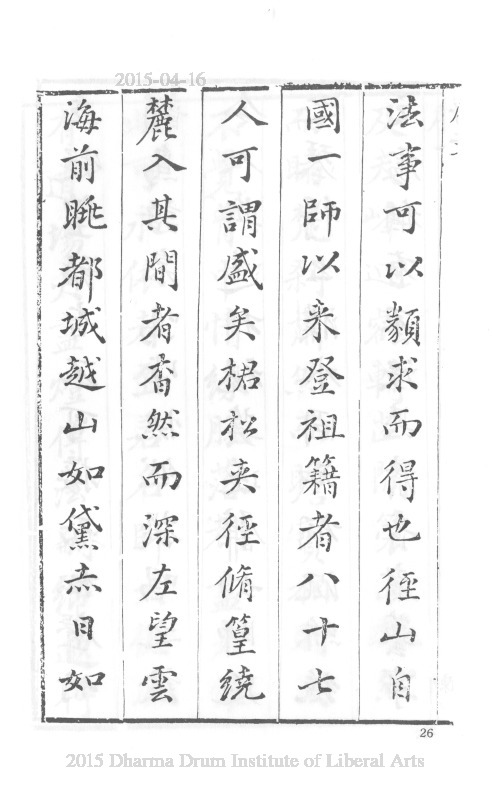 2015-04-16
法事可以類求而得也徑山自
國一師以来登祖籍者八十七
人可謂盛矣桾松夾徑脩篁繞
麓入其間者杳然而深左望雲
海前眺都城越山如黛赤日如
26
2015 Dharma Drum Institute of Liberal Arts